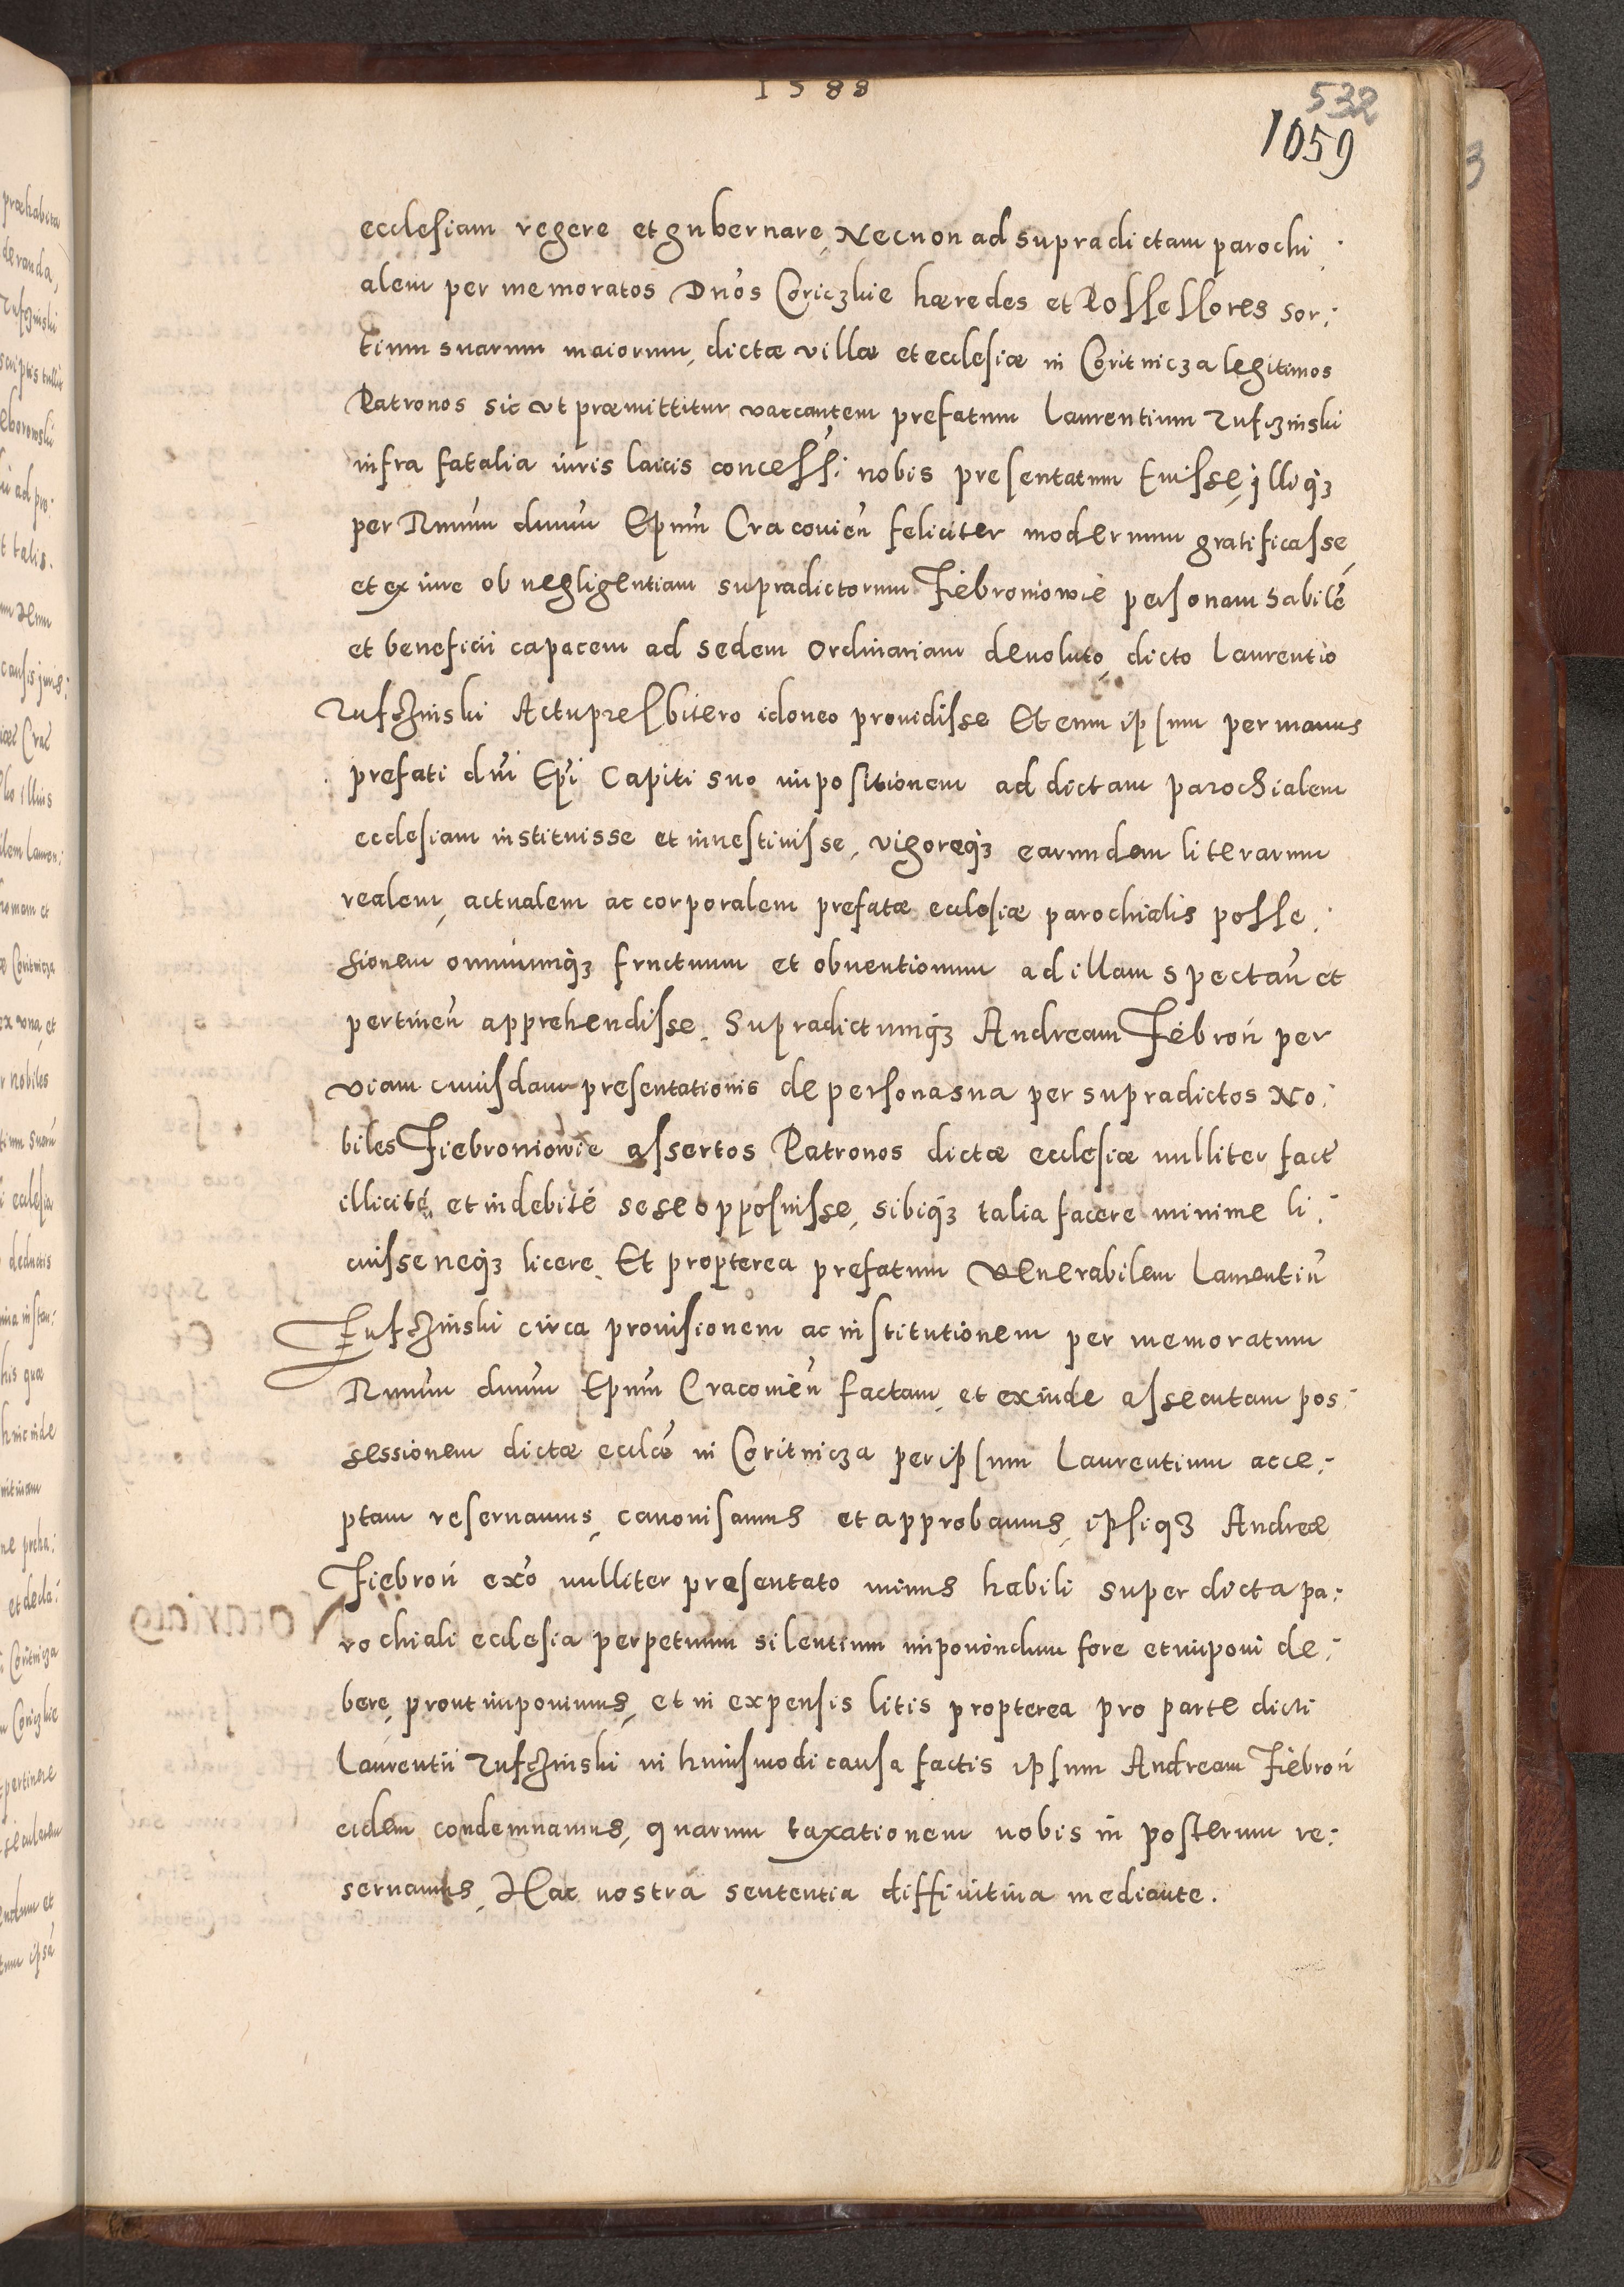 1588
532
1059
ecclesiam regere et gubernare, Necnon ad supradictam parochi
alem per memoratos Dnōs Coriczkie hæredes et Possessores sor:
tium suarum maiorum, dictæ villæ et ecclesiæ in Coritnicza legitimos
Patronos sic ut præmittitur vaccantem prefatum Laurentium Rusczinski
infra fatalia iuris laicis concessi nobis presentatum fuisse, illiqȝ
per Rmūm dnūm Epūm Cracouieñ feliciter modernum gratificasse,
et ex iure ob negligentiam supradictorum Fiebroniowie personam habilē
et beneficii capacem ad sedem Ordinariam deuoluto, dicto Laurentio
Rusczinski Actupresbitero idoneo prouidisse Et eum ipsum per manus
prefati dnī Epī Capiti suo impositionem ad dictam parochialem
ecclesiam instituisse et inuestiuisse, vigoreqȝ earumdem literarum
realem, actualem ac corporalem prefatæ ecclesiæ parochialis posse:
sionem omniumqȝ fructuum et obuentionum ad illam spectañ et
pertineñ apprehendisse. Supradictumqȝ Andream Fiebroń per
viam cuiusdam presentationis de persona sua per supradictos No:
biles Fiebroniowie assertos Patronos dictæ ecclesiæ nulliter fact
illicitè, et indebitè sese opposuisse, sibiqȝ talia facere minime li:
cuisse neqȝ licere. Et propterea prefatum Venerabilem Laurentiū
Rusczinski circa prouisionem ac institutionem per memoratum
Rmūm dnūm Epūm Cracouieñ factam, et exinde assecutam pos:
sessionem dictæ ecclæ in Coritnicza per ipsum Laurentium acce:
ptam reseruamus, canonisamus et approbamus, ipsiqȝ Andreæ
Fiebroń exō nulliter presentato minus habili super dicta pa:
rochiali ecclesia perpetuum silentium imponendum fore et imponi de:
bere, prout imponimus, et in expensis litis propterea pro parte dicti
Laurentii Rusczinski in huiusmodi causa factis ipsum Andream Fiebroń
eidem condemnamus, quarum taxationem nobis in posterum re:
seruamus, Hac nostra sententia diffinitiua mediante.